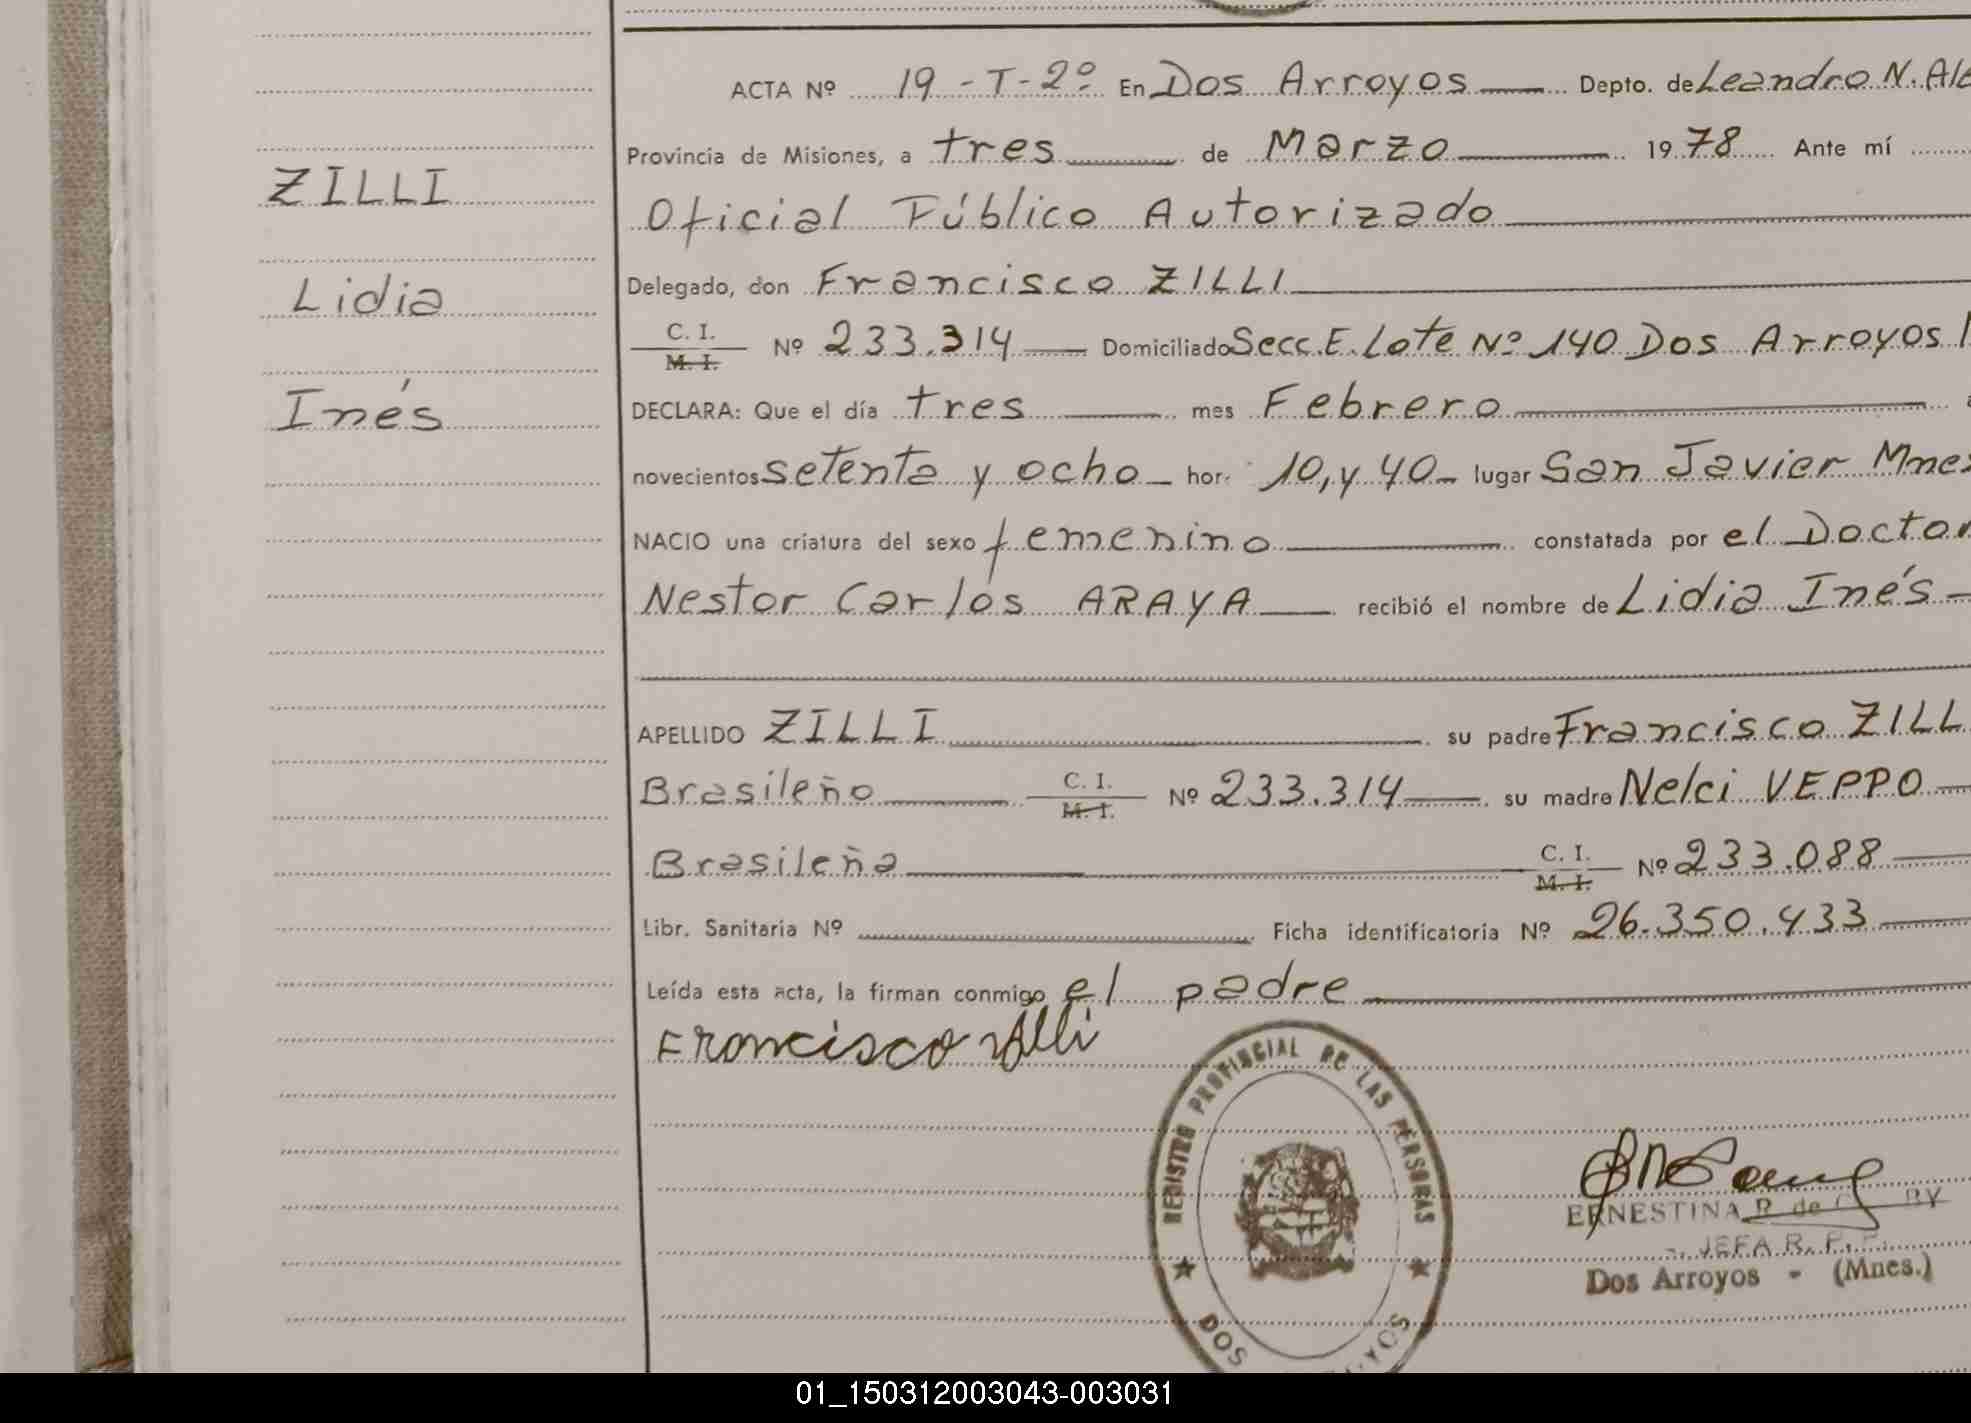 ACTA Nº 19-T-2º En Dos Arroyos Depto. de Leandro N. Ale
Provincia de Misiones, a tres de Marzo 1978 Ante mí
ZILLI
Oficial Público Autorizado
Delegado, don Francisco ZILLI
Lidia
C. I. M. I. Nº 233.314 Domiciliado Secc. E. Lote Nº 140 Dos Arroyos
Inés
DECLARA: Que el día tres mes Febrero
novecientos setenta y ocho hor. 10, y 40 lugar San Javier Mnes
NACIO una criatura del sexo femenino constatada por el Doctor
Nestor Carlos ARAYA recibió el nombre de Lidia Inés
APELLIDO ZILLI su padre Francisco ZILL
Brasileño C. I. M. I. Nº 233.314 su madre Nelci VEPPO
Brasileña C. I. M. I. Nº 233.088
Libr. Sanitaria Nº Ficha identificatoria Nº 26.350.433
Leída esta acta, la firman conmigo el padre
Francisco Zilli
REGISTRO PROVINCIAL DE LAS PERSONAS
ERNESTINA R. de
JEFA R. P. P.
Dos Arroyos - (Mnes.)
DOS
01_150312003043-003031